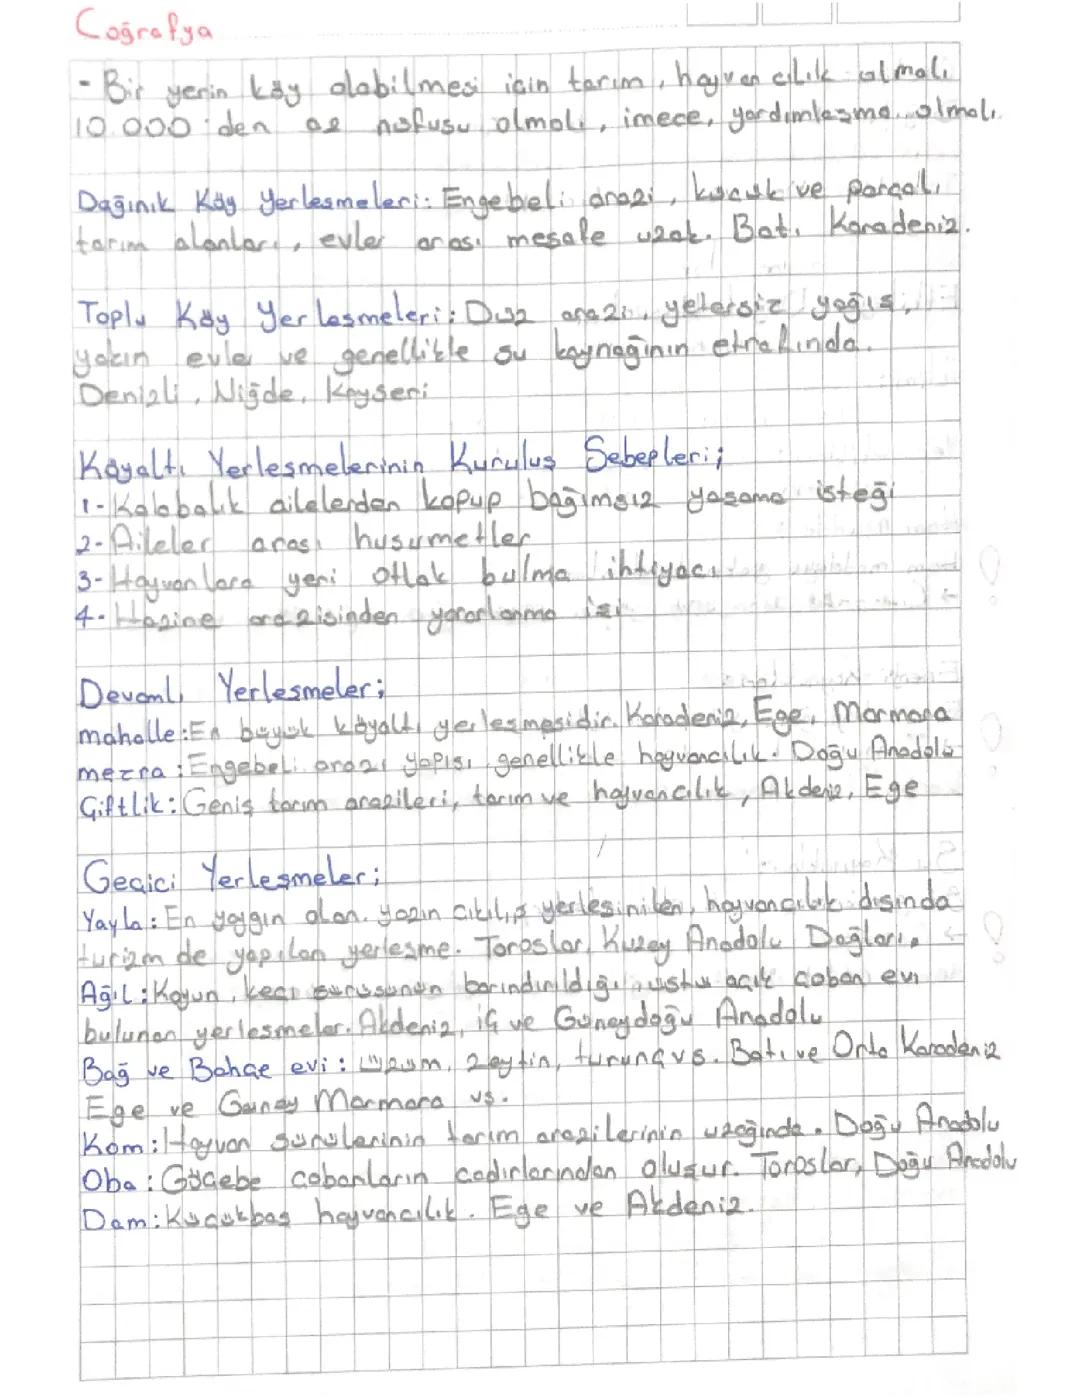 Coğrafya
- Bir yerin köy olabilmesi için tarım, hayvancılık olmalı
10.000'den az nüfusu olmalı, imece, yardımlaşma olmalı.
Dağınık Köy Yerleşmeleri: Engebeli arazi, küçük ve parçalı
tarım alanları, evler arası mesafe uzak. Batı Karadeniz.
Toplu Köy Yerleşmeleri: Düz arazi, yetersiz yağış,
yakın evler ve genellikle su kaynağının etrafında.
Denizli, Niğde, Kayseri
Köyaltı Yerleşmelerinin Kuruluş Sebepleri;
1- Kalabalık ailelerden kopup bağımsız yaşama isteği
2- Aileler arası husumetler
3- Hayvanlara yeni otlak bulma ihtiyacı
4- Hazine arazisinden yararlanma işi
Devamlı Yerleşmeler;
mahalle: En büyük köyaltı yerleşmesidir. Karadeniz, Ege, Marmara
mezra: Engebeli arazi yapısı, genellikle hayvancılık. Doğu Anadolu
Çiftlik: Geniş tarım arazileri, tarım ve hayvancılık, Akdeniz, Ege
Geçici Yerleşmeler;
Yayla: En yaygın olan. yazın çıkılıp yerleşinilen, hayvancılık dışında
turizm de yapılan yerleşme. Toroslar, Kuzey Anadolu Dağları.
Ağıl: Koyun, keçi sürüsünün barındırıldığı, üstü açık çoban evi
bulunan yerleşmeler. Akdeniz, iç ve Güneydoğu Anadolu
Bağ ve Bahçe evi: üzüm, zeytin, turunç vs. Batı ve Orta Karadeniz
Ege ve Güney Marmara vs.
Kom: Hayvan sürülerinin tarım arazilerinin uzağında. Doğu Anadolu
Oba: Göçebe çobanların çadırlarından oluşur. Toroslar, Doğu Anadolu
Dam: Küçükbaş hayvancılık. Ege ve Akdeniz.